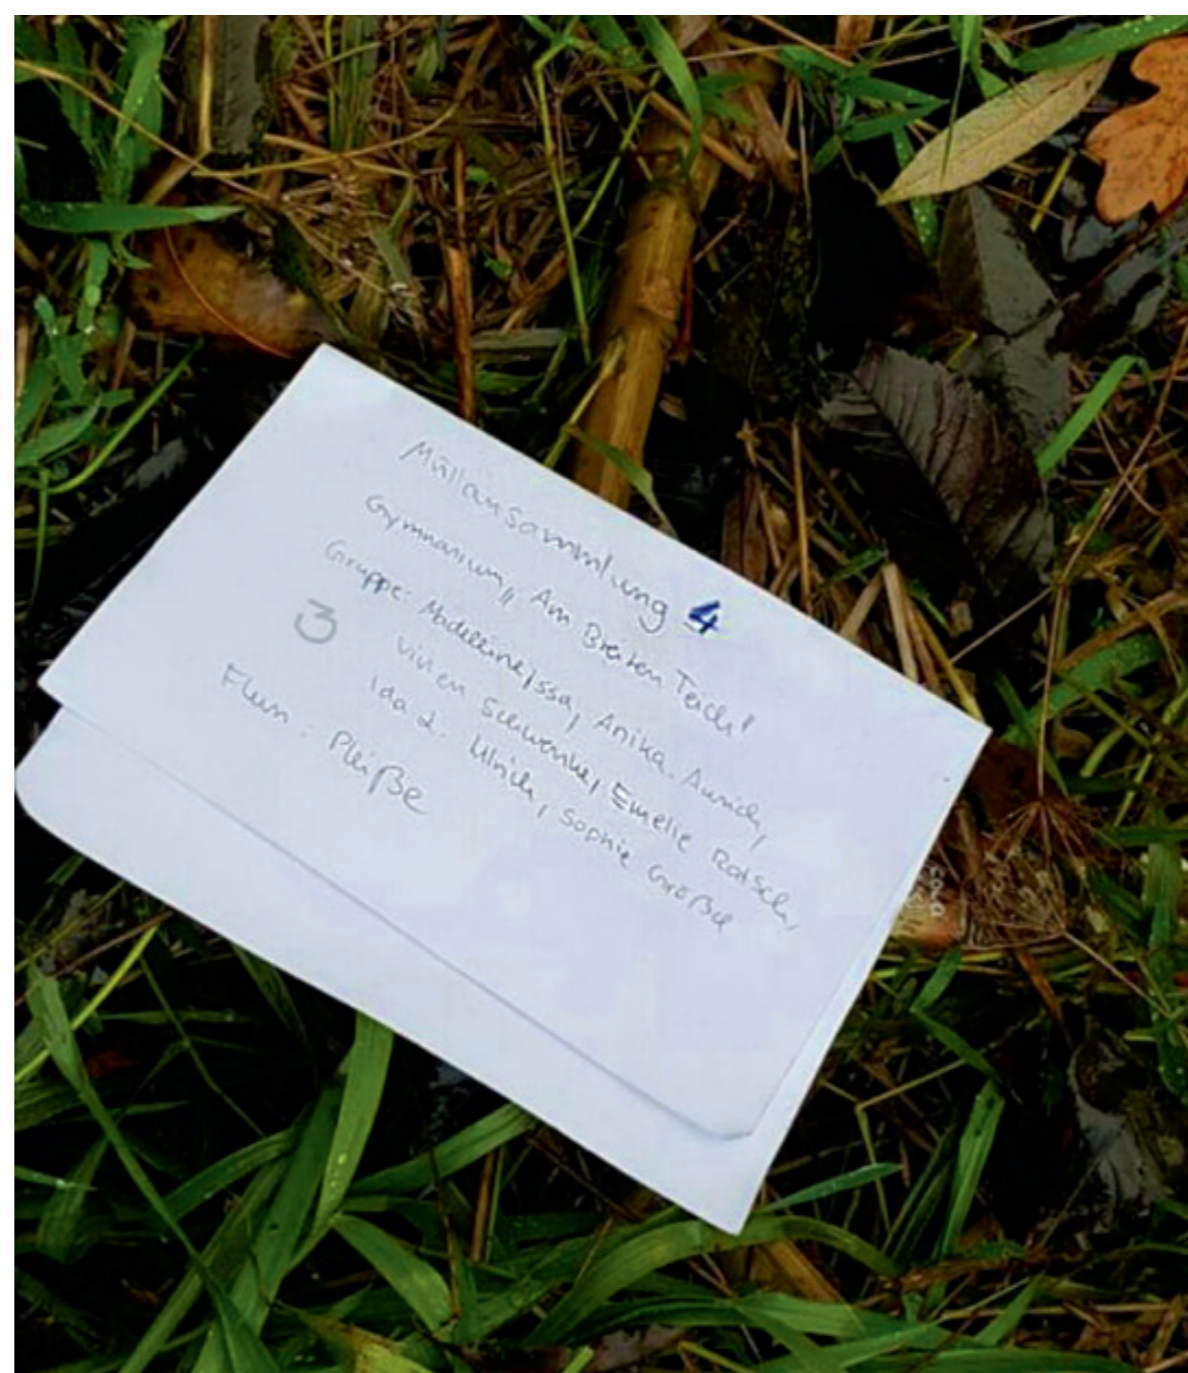 Müllansammlung 4
Gymnasium „Am Breiten Teich"
Gruppe: Madeleine, Issa, Anika Aurich,
3 Schwenke, Emelie Ratsch,
Ida L. Ulrich, Sophie Größel
Fluss: Pleiße